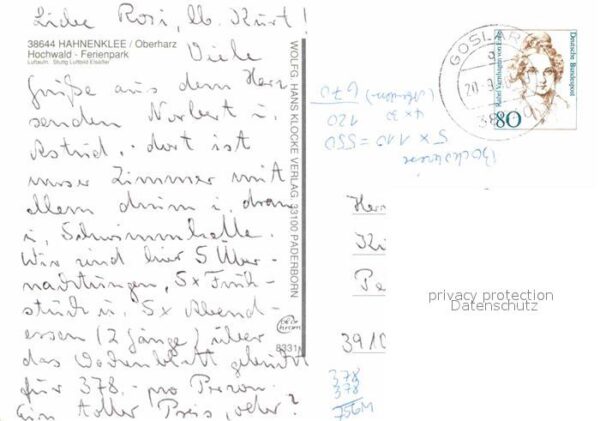 Liebe Rosi, lb. Kurt!
38644 HAHNENKLEE / Oberharz
Hochwald - Ferienpark
Luftaufn.: Stuttg. Luftbild Elsäßer
Viele
Grüße aus dem Harz
senden Norbert u.
Astrid. dort ist
unser Zimmer mit
allem drum i. dran
i. Schwimmhalle.
Wir sind hier 5 Über-
nachtungen, 5x Früh-
stück u. 5x Abend-
essen (2 Gänge) über
das Wochenblatt gebucht
für 378.- pro Person.
Ein toller Preis, oder?
WOLFG. HANS KLOCKE VERLAG 33100 PADERBORN
8331
GOSLAR
Deutsche Bundespost
Rahel Varnhagen von Ense
80
5 x 110 = 550
4 x 30
120
670
Herr
Ku
Pe
3910
privacy protection
Datenschutz
378
378
756M